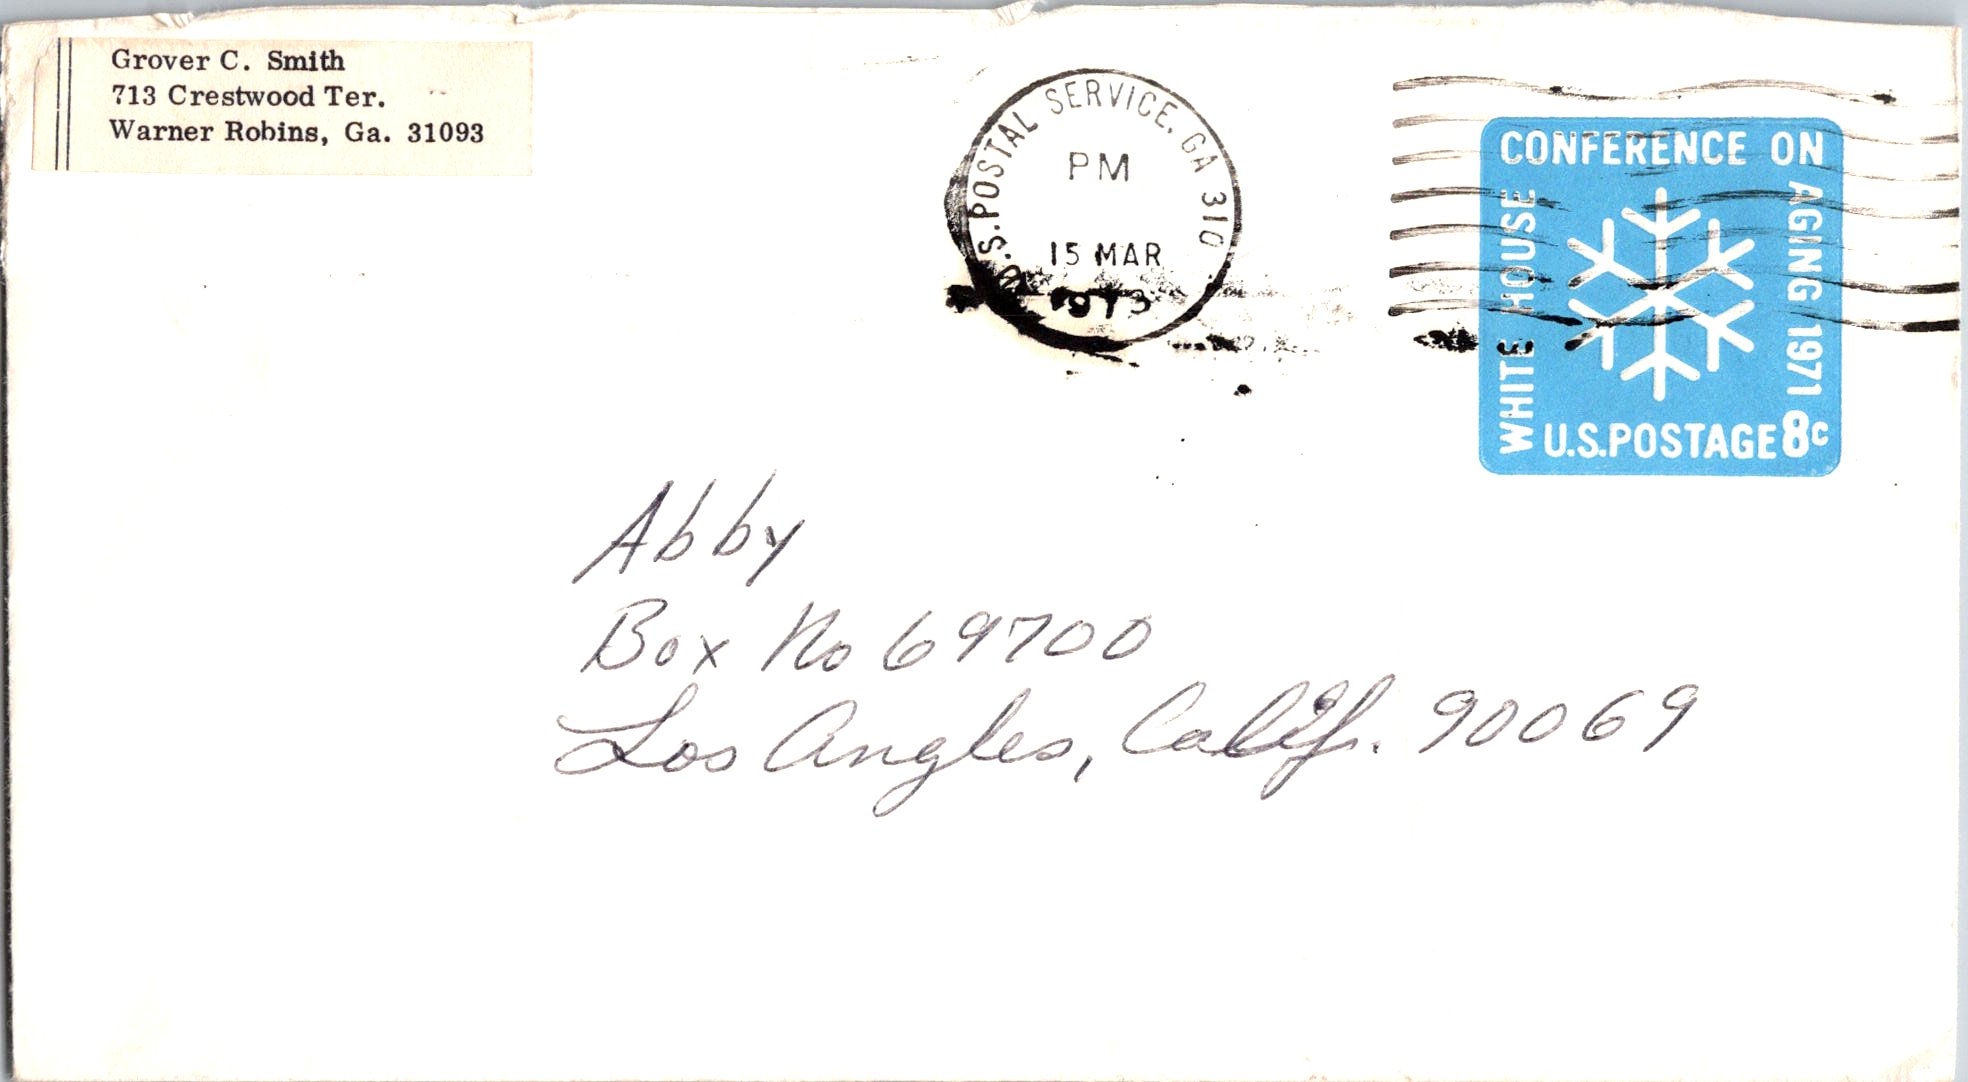 Grover C. Smith
713 Crestwood Ter.
Warner Robins, Ga. 31093
U.S. POSTAL SERVICE, GA 310
PM
15 MAR
1973
WHITE HOUSE
CONFERENCE ON
AGING 1971
U.S. POSTAGE 8c
Abby
Box No 69700
Los Angles, Calif. 90069